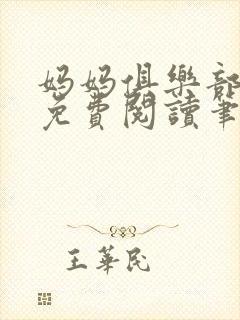 媽媽俱樂部
免費閱讀筆
王華民